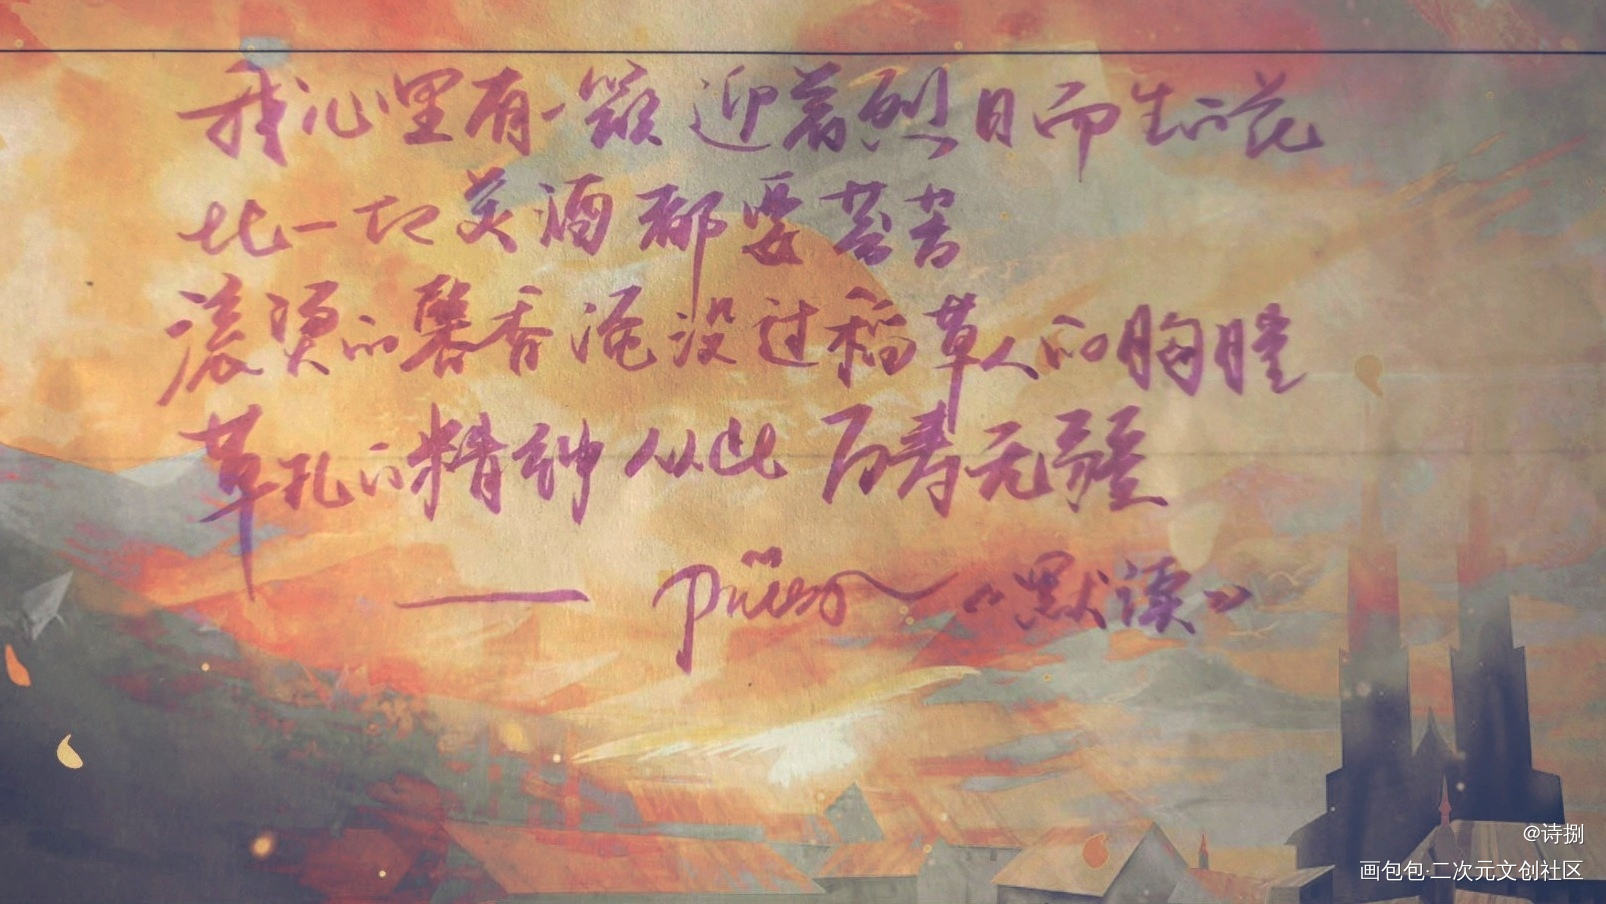 我心里有一簇迎着烈日而生的花
比一切美酒都要芬芳
滚烫的馨香淹没过稻草人的胸膛
草扎的精神从此万寿无疆
—— priest 《默读》
@诗捌
画包包·二次元文创社区